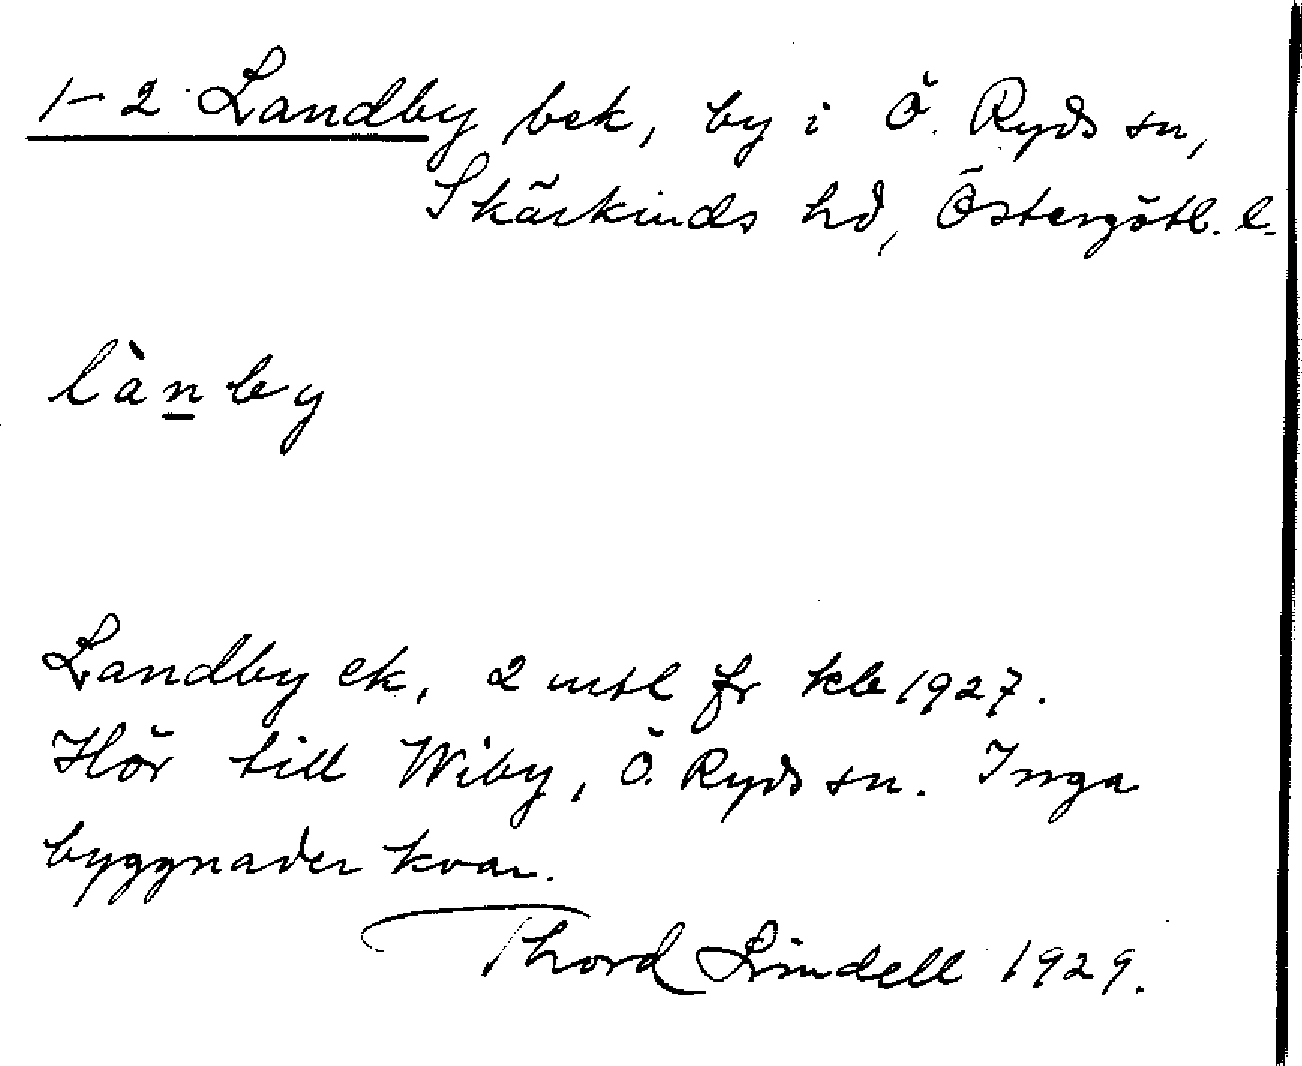 1-2 Landby bek, by i Ö. Ryds sn,
Skärkinds hd, Östergötl. l.
lànby
Landby ek, 2 mtl fr kb 1927.
Hör till Wiby, Ö. Ryds sn. Inga
byggnader kvar.
Thord Lindell 1929.